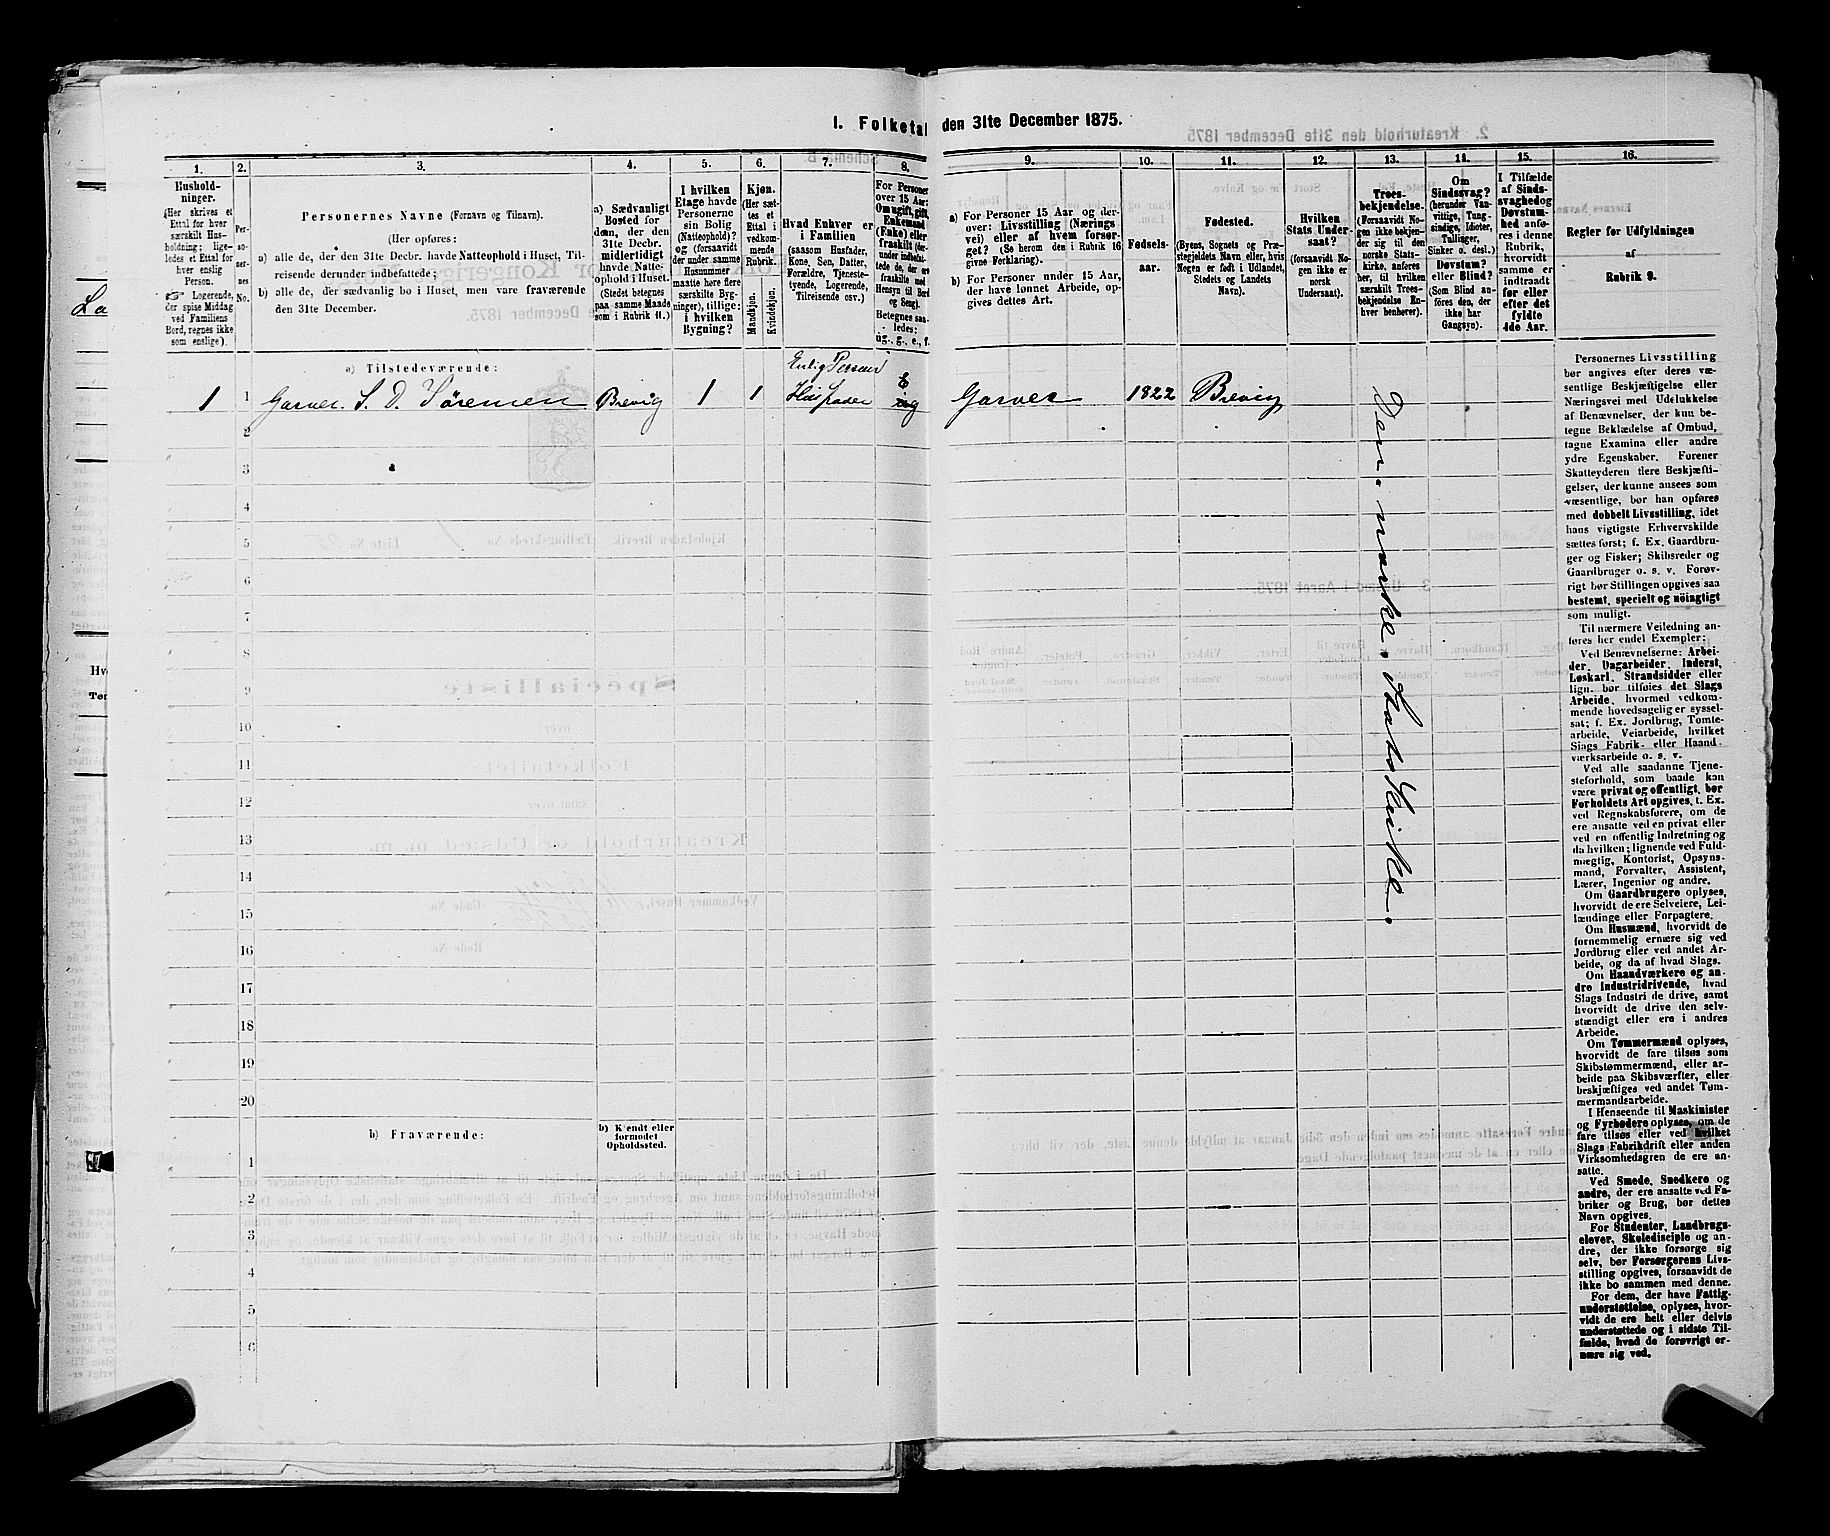 1. Folketal den 31te December 1875.
1.
Husholdninger.
(Her skrives et
Ettal for hver
særskilt Husholdning;
ligeledes et Ettal for
hver enslig
Person.
☞ Logerende,
der spise Middag
ved Familiens
Bord, regnes ikke
som enslige).
2.
Personernes
No.
3.
Personernes Navne (Fornavn og Tilnavn).
(Her opføres:
a) alle de, der den 31te Decbr. havde Natteophold i Huset, Tilreisende derunder indbefattede;
b) alle de, der sædvanlig bo i Huset, men vare fraværende
den 31te December.
4.
a) Sædvanligt
Bosted for
dem, der den
31te Decbr.
midlertidigt
havde Natteophold i Huset.
(Stedet betegnes
paa samme Maade
som i Rubrik 11.)
5.
I hvilken
Etage havde
Personerne
sin Bolig
(Natteophold)?
og (forsaavidt
der under samme
Husnummer
maatte høre flere
særskilte Bygninger), tillige:
i hvilken
Bygning?
6.
Kjøn.
(Her sættes et
Ettal i
vedkommende
Rubrik.
Mandkjøn.
Kvindekjøn.
7.
Hvad Enhver er
i Familien
(saasom Husfader,
Kone, Søn, Datter,
Forældre, Tjenestetyende, Logerende,
Tilreisende osv.)
8.
For Personer
over 15 Aar:
Om ugift, gift,
Enkemand
(Enke) eller
fraskilt
Betegnes saaledes:
ug., g., e., f.
9.
a) For Personer 15 Aar og derover: Livsstilling (Næringsvei) eller af hvem forsørget? (Se herom den i Rubrik 16
givne Forklaring).
b) For Personer under 15 Aar,
der have lønnet Arbeide, opgives dettes Art.
10.
Fødselsaar.
11.
Fødested.
(Byens, Sognets og Præstegjeldets Navn eller, hvis
Nogen er født i Udlandet,
Stedets og Landets
Navn).
12.
Hvilken
Stats Undersaat?
(forsaavidt Nogen ikke er
norsk
Undersaat).
13.
Troesbekjendelse.
(Forsaavidt Nogen ikke bekjender sig til den
norske Statskirke, anføres
her, til hvilken
særskilt Troesbekjendelse Enhver henhører).
14.
Om
Sindssvag?
(herunder Vanvittige, Tungsindige, Idioter,
Tullinger,
Sinker o. desl.)
Døvstum?
eller Blind?
(Som Blind anføres den, der
ikke har
Gangsyn).
15.
I Tilfælde
af Sindssvaghed og
Døvstumhed anføres i denne
Rubrik,
hvorvidt
samme er
indtraadt
før eller
efter det
fyldte
4de Aar.
16.
Regler for Udfyldningen
af
Rubrik 9.
a) Tilstedeværende:
1 1 Garver S. D. Sörensen Brevig 1 1 Enlig Person Husfader E ug Garver 1822 Brevig
Den norske Statskirke.
2
3
4
5
6
7
8
9
10
11
12
13
14
15
16
17
18
19
20
b) Fraværende:
b) Kjendt eller
formodet
Opholdssted.
1
2
3
4
5
6
Personernes Livsstilling
bør angives efter deres væsentlige Beskjæftigelse eller
Næringsvei med Udelukkelse
af Benævnelser, der kun betegne Beklædelse af Ombud,
tagne Examina eller andre
ydre Egenskaber. Forener
Skatteyderen flere Beskjæftigelser, der kunne ansees som
væsentlige, bør han opføres
med dobbelt Livsstilling, idet
hans vigtigste Erhvervskilde
sættes først; f. Ex. Gaardbruger og Fisker; Skibsreder og
Gaardbruger o. s. v. Forøvrigt bør Stillingen opgives saa
bestemt, specielt og nöiagtigt
som muligt.
Til nærmere Veiledning anføres her endel Exempler:
Ved Benævnelserne: Arbeider, Dagarbeider, Inderst,
Løskarl, Strandsidder eller
lign. bør tilføies det Slags
Arbeide, hvormed vedkommende hovedsagelig er sysselsat; f. Ex. Jordbrug, Tomtearbeide, Veiarbeide, hvilket
Slags Fabrik- eller Haandværksarbeide o. s. v.
Ved alle saadanne Tjenesteforhold, som baade kan
være privat og offentligt, bør
Forholdets Art opgives, t. Ex.
ved Regnskabsførere, om de
ere ansatte ved en privat eller
ved en offentlig Indretning og
da hvilken; lignende ved Fuldmægtig, Kontorist, Opsynsmand, Forvalter, Assistent,
Lærer, Ingeniør og andre.
Om Gaardbrugere oplyses,
hvorvidt de ere Selveiere, Leilændinge eller Forpagtere.
Om Husmænd, hvorvidt de
fornemmelig ernære sig ved
Jordbrug eller ved andet Arbeide, og da af hvad Slags.
Om Haandværkere og andre Industridrivende, hvad
Slags Industri de drive, samt
hvorvidt de drive den selvstændigt eller ere i andres
Arbeide.
Om Tømmermænd oplyses,
hvorvidt de fare tilsøs som
Skibstømmermænd, eller arbeide paa Skibsværfter, eller
beskjæftiges ved andet Tømmermandsarbeide.
I Henseende til Maskinister
og Fyrbødere oplyses, om de
fare tilsøs eller ved hvilket
Slags Fabrikdrift eller anden
Virksomhedsgren de ere ansatte.
Ved Smede, Snedkere og
andre, der ere ansatte ved Fabriker og Brug, bør dettes
Navn opgives.
For Studenter, Landbrugselever, Skoledisciple og andre, der ikke forsørge sig
selv, bør Forsørgerens Livsstilling opgives, forsaavidt de
ikke bo sammen med denne.
For dem, der have Fattigunderstøttelse, oplyses, hvorvidt de ere helt eller delvis
understøttede og i sidste Tilfælde, hvad de forøvrigt ernære sig ved.